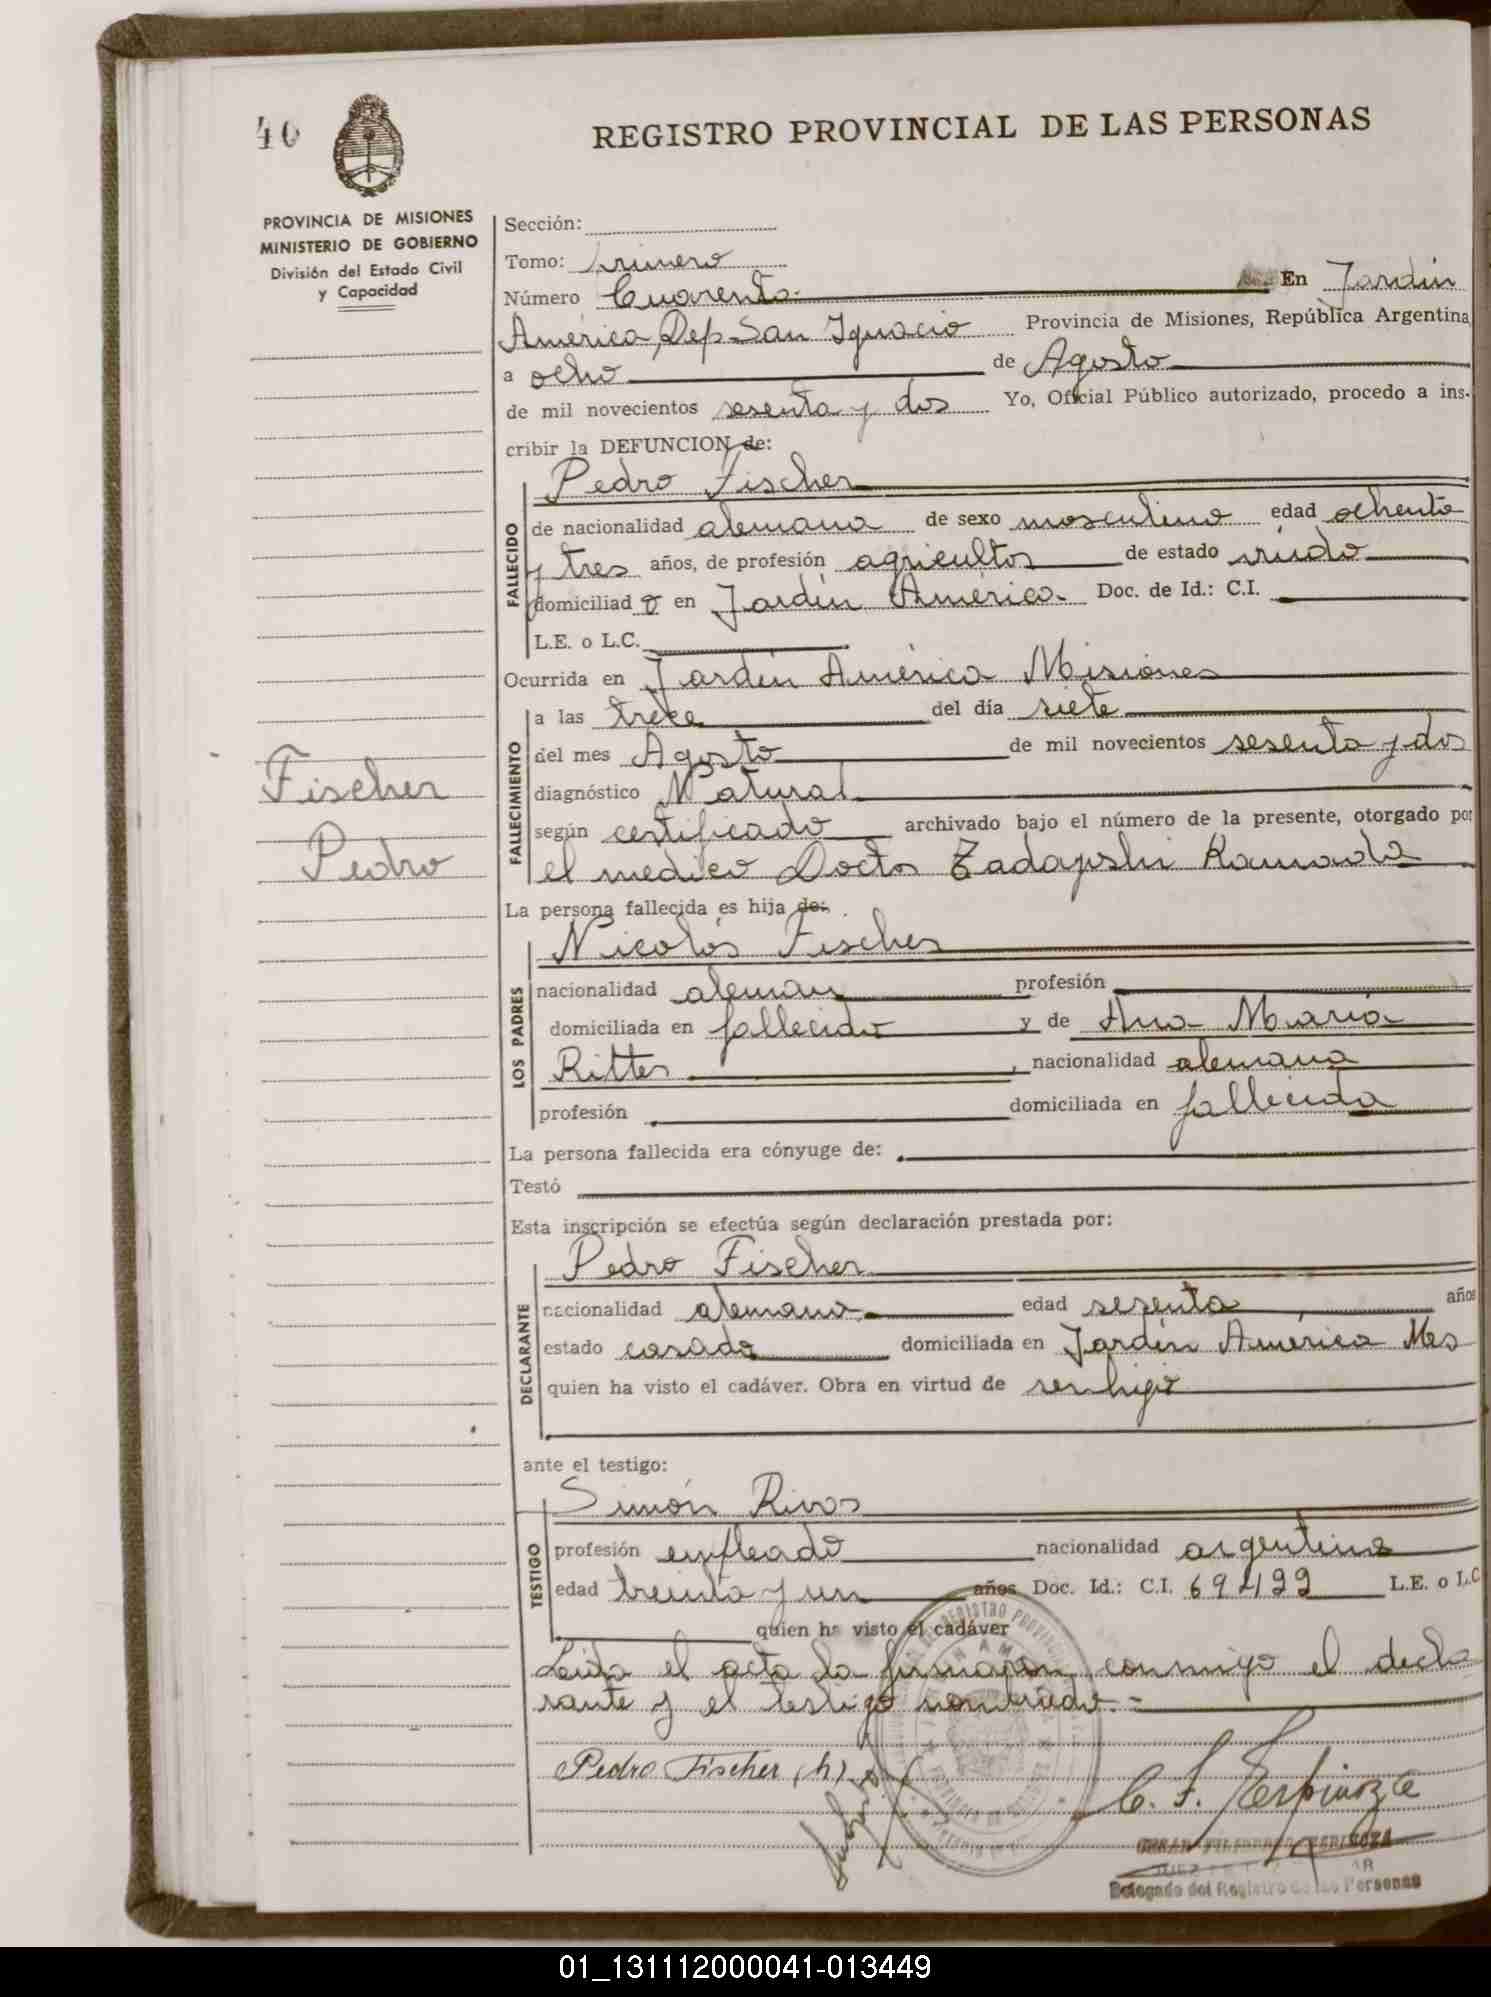 40
REGISTRO PROVINCIAL DE LAS PERSONAS
PROVINCIA DE MISIONES
MINISTERIO DE GOBIERNO
División del Estado Civil
y Capacidad
Sección:
Tomo: primero
Número Cuarenta. En Jardín
América, Dep. San Ignacio Provincia de Misiones, República Argentina
a ocho de Agosto
de mil novecientos sesenta y dos Yo, Oficial Público autorizado, procedo a ins-
cribir la DEFUNCION de:
Pedro Fischer
FALLECIDO
de nacionalidad alemana de sexo masculino edad ochenta
y tres años, de profesión agricultor de estado viudo
domiciliad o en Jardín América. Doc. de Id.: C.I.
L.E. o L.C.
Ocurrida en Jardín América Misiones
FALLECIMIENTO
a las trece del día siete
del mes Agosto de mil novecientos sesenta y dos
diagnóstico Natural
según certificado archivado bajo el número de la presente, otorgado por
el medico Doctor Ramada
Fischer
Pedro
La persona fallecida es hija de:
Nicolás Fischer
LOS PADRES
nacionalidad alemán profesión
domiciliada en fallecido y de Ana María
Ritter, nacionalidad alemana
profesión domiciliada en fallecida
La persona fallecida era cónyuge de:
Testó
Esta inscripción se efectúa según declaración prestada por:
Pedro Fischer
DECLARANTE
nacionalidad alemana edad sesenta años
estado casado domiciliada en Jardín América Mes
quien ha visto el cadáver. Obra en virtud de ser hijo
ante el testigo:
Simón Rivos
TESTIGO
profesión empleado nacionalidad argentina
edad treinta y un años Doc. Id.: C.I. L.E. o L.C
quien ha visto el cadáver
Leida el acta la firmaron conmigo el decla
rante y el testigo nombrado.=
Pedro Fischer (h)
C. F. Espinoza
Delegado del Registro de las Personas
01_131112000041-013449